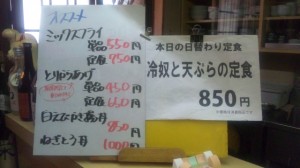 オススメ
ミックスフライ
単品550円
定食750円
とりからあげ
単品450円
定食650円
850円
ねぎとろ丼
1000円
本日の日替わり定食
冷奴と天ぷらの定食
850円